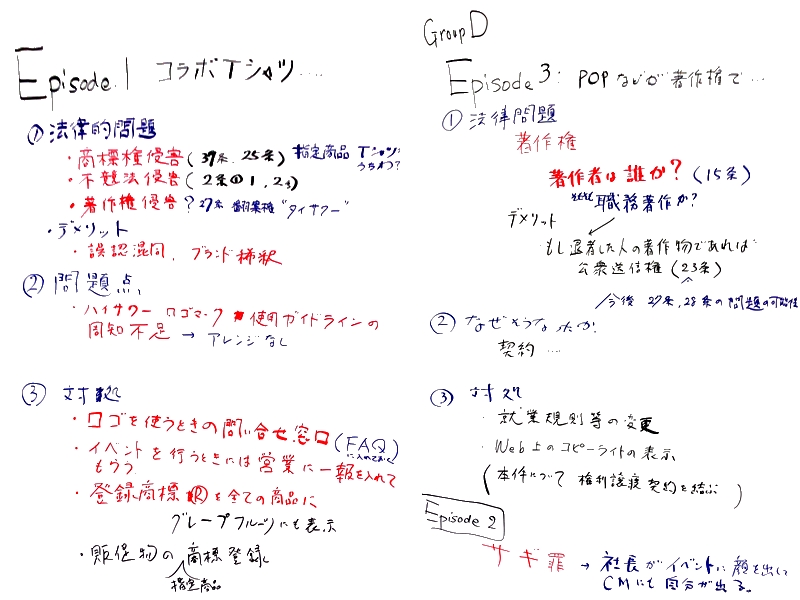 Episode.1 コラボTシャツ....
① 法律的問題
・商標権侵害(37条.25条) 指定商品 Tシャツ
うちわ?
・不競法侵害(2条①1,2号)
・著作権侵害? 27条 翻案権 "タイサワー"
・デメリット
・誤認混同、ブランド稀釈
② 問題点
・ハイサワー ロゴマーク 使用ガイドラインの
周知不足 → アレンジなし
③ 対処
・ロゴを使うときの問い合せ窓口(FAQ)
に入れておく
・イベントを行うときには営業に一報を入れて
もらう
・登録商標Ⓡを全ての商品に
グレープフルーツにも表示
・販促物の商標登録
指定商品
Group D
Episode 3: POPなどが著作権で...
① 法律問題
著作権
著作者は誰か?(15条)
職務著作か?
デメリット
もし退者した人の著作物であれば
公衆送信権(23条)
今後 27条,28条の問題の可能性
② なぜそうなったか
契約....
③ 対処
・就業規則等の変更
・Web上のコピーライトの表示
(本件について 権利譲渡契約を結ぶ)
Episode 2
サギ罪 → 社長がイベントに顔を出して
CMにも自分が出る。